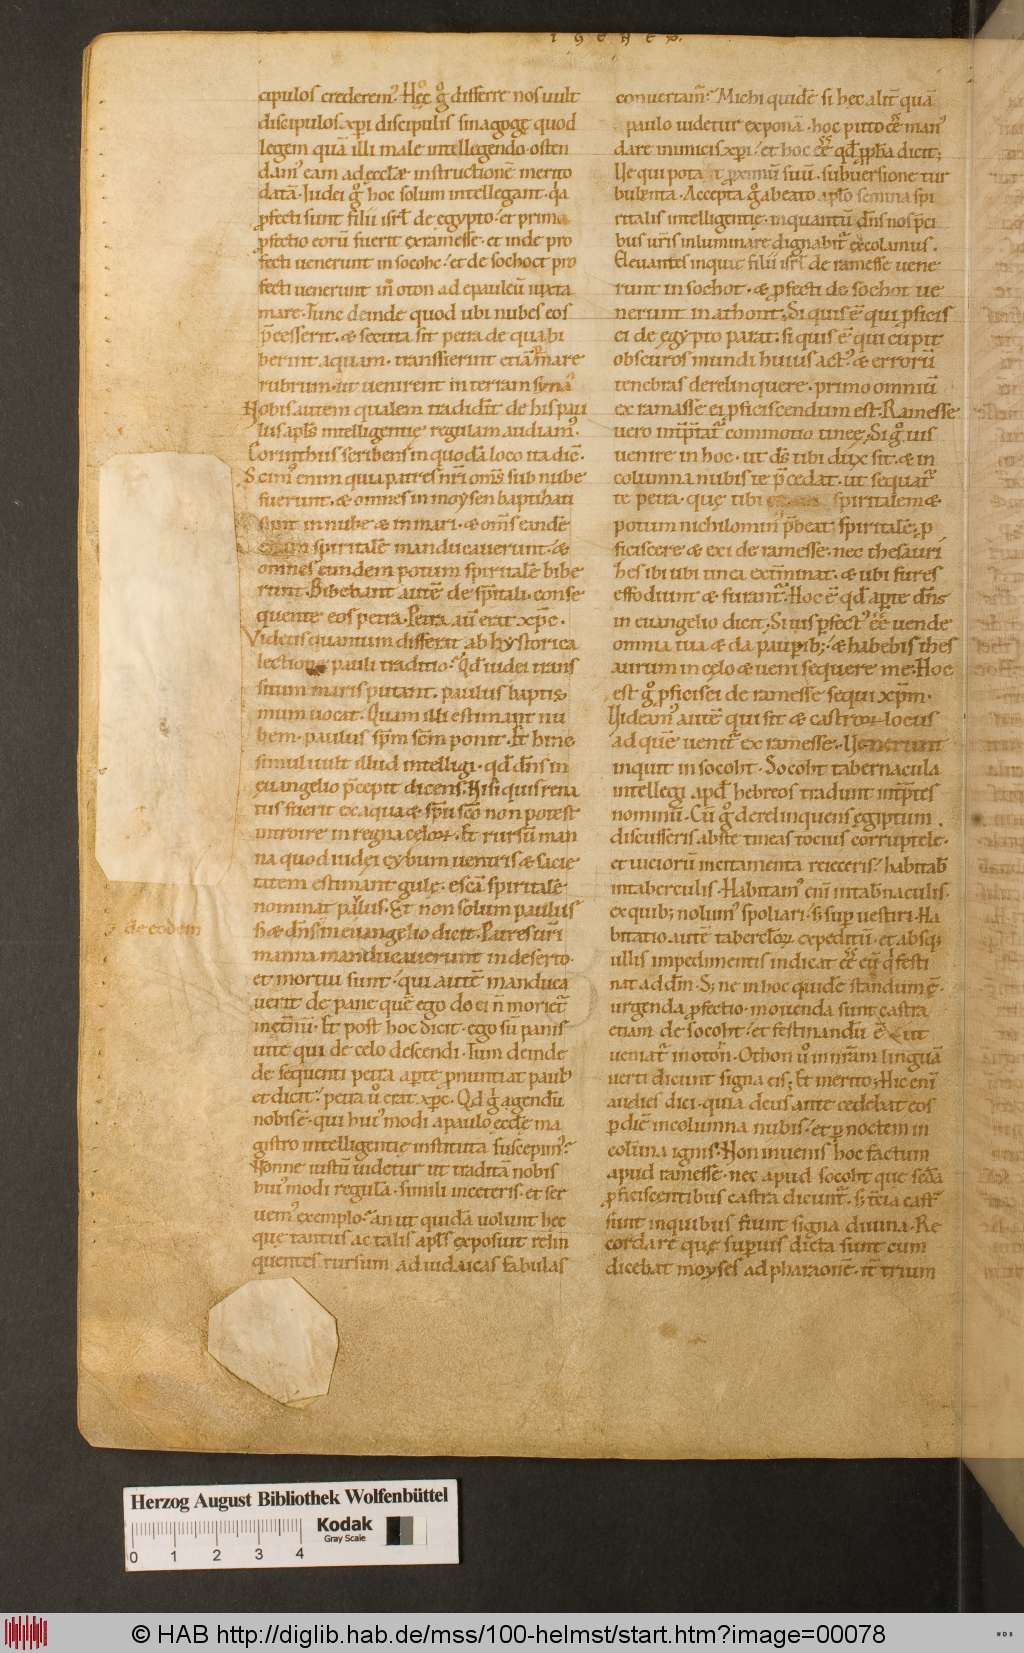 cipulos crederem᷒. Hęc g̊ differre nos uult
discipulos xp̄i discipulis sinagogę quod
legem quā illi male intellegendo. osten
dam᷒ eam ad eccl̄æ instructionē merito
datā. Iudei g̊ hoc solum intellegant. q̇a
p̄fecti sunt filii isrl̄ de egypto. et prima
p̄fectio eorū fuerit ex ramesse. et inde pro
fecti uenerunt in socohc. et de sochoct pro
fecti uenerunt in oton ad epauleū iuxta
mare. Tunc deinde quod ubi nubes eos
p̄cesserit. & secuta sit petra de qua bi
berint aquam. transfierint etiā mare
rubrum. ut uenirent in terram syna
Nobis autem qualem tradidit de his pau
lus apl̄s intelligentię regulam audiam᷒.
Corinthus scribens in quodā loco ita dic̄.
Scim᷒ enim quia patres nr̄i om̄s sub nube
fuerunt. & omnes in moysen baptizati
sunt in nube & in mari. & om̄s eandē
escam spiritalē manducauerunt. &
omnes eundem potum spiritalē bibe
runt. Bibebant autē de sp̄itali conse
quente eos petra. Petra aū erat xp̄c.
Videtis quantum differat ab hystorica
lectione pauli traditio. Qd̄ iudei trans
situm maris putant. paulus baptis
mum uocat. Quam illi estimant nu
bem. paulus sp̄m sc̄m ponit. Et hinc
simul uult illud intelligi. qd̄ dn̄s in
euangelio p̄cepit dicens. Nisi quis rena
tus fuerit ex aqua & sp̄u sc̄o non potest
introire in regna cęlorꝝ. Et rursū man
na quod iudei cybum uentris & sacie
tatem estimant gulę. escā spiritalē
nominat paulus. Et non solum paulus
s; & dn̄s in euangelio dicit. Patres uri
manna manducauerunt in deserto.
et mortui sunt. qui autē manduca
uerit de pane quē ego do ei n̄ moriet᷑
in ęt̄nū. Et post hoc dicit. ego sū panis
uitę qui de celo descendi. Tum deinde
de sequenti petra ap̄te p̄nuntiat paul᷒
et dicit. petra ů erat xp̄c. Qd̄ g̊ agendū
nobis ē. qui hui᷒modi a paulo eccl̄e ma
gistro intelligentię instituta suscepim᷒.
Nonne iustū uidetur ut traditā nobis
hui᷒modi regulā. simili in ceteris. et ser
uem᷒ exemplo. an ut quidā uolunt hec
quę tantus ac talis apl̄s exposuit relin
quentes rursum ad iudaicas fabulas
conuertam᷑. Michi quidē si hec alit̄ quā
paulo uidetur exponā. hoc puto cē̄ man᷒
dare inimicis xp̄i. et hoc eē̄ qd̄ pp̄ha dicit;
Uę qui pota t p̄ximū suū. subuersione tur
bulenta. Accepta g̊ a beato aplo semina spi
ritalis intelligentię. in quantū dn̄s nos p̄ci
bus ur̄is inluminare dignabit᷑ excolamus.
Eleuantes inquit filii isrl̄ de ramesse uene
runt in sochot. & p̄fecti de sochot ue
nerunt in athout. Si quis ē qui p̄ficis
ci de egypto parat. si quis ē qui cupit
obscuros mundi huius act᷒ & errorū
tenebras derelinquere. primo omniū
ex ramasse ei p̄ficiscendum est. Ramesse
uero int̄p̄tat᷑ commotio tineę. Si g̊ uis
uenire in hoc. ut dn̄s tibi dux sit. & in
columna nubis te p̄cedat. ut sequat᷑
te petra. quę tibi escam spiritalem &
potum nichilomin᷒ p̄beat spiritalē. p̄
ficiscere & exi de ramesse. nec thesauri
hes ibi ubi tinea ext̄minat. & ubi fures
effodiunt & furant᷑. Hoc ē qd̄ ap̄te dn̄s
in euangelio dicit. Si uis p̄fect᷒ ēē̄ uende
omnia tua & da paup̄ib;. & habebis thes
aurum in cęlo & ueni sequere me. Hoc
est g̊ p̄ficisci de ramesse sequi xp̄m.
Videam᷒ autē qui sit & castrorꝝ locus
ad quē uenit᷑ ex ramesse. Uenerunt
inquit in socoht. Socoht tabernacula
intellegi apd̄ hebreos tradunt int̄p̄tes
nominū. Cū g̊ derelinquens egiptum
discusseris abste tineas tocius corruptelę.
et uiciorū incitamenta reieceris. habitab᷒
in taberculis. Habitam᷒ enī in tab̄naculis.
ex quib; nolum᷒ spoliari. s; sup̄ uestiri. Ha
bitatio autē taberclorꝝ expeditū. et absq;
ullis impedimentis indicat eē̄ eū q̇ festi
nat ad dm̄. S; ne in hoc quidē standum ē.
urgenda p̄fectio. mouenda sunt castra
etiam de socoht. et festinandū ē ut
ueniat᷑ in oton. Othon ů in nr̄am linguā
uerti dicunt signa eis; Et merito; Hic enī
audies dici. quia deus ante cedebat eos
p̄ diē in columna nubis. et p̄ noctem in
colūna ignis. Non inuenis hoc factum
apud ramesse. nec apud socoht quę sedā
p̄ficiscentibus castra dicunt᷑. s; t̄cia cast᷑
sunt in quibus fiunt signa diuina. Re
cordare quę supius dicta sunt cum
dicebat moyses ad pharaonē. it̄ trium
de eodem
Herzog August Bibliothek Wolfenbüttel
Kodak
Gray Scale
0 1 2 3 4
© HAB http://diglib.hab.de/mss/100-helmst/start.htm?image=00078